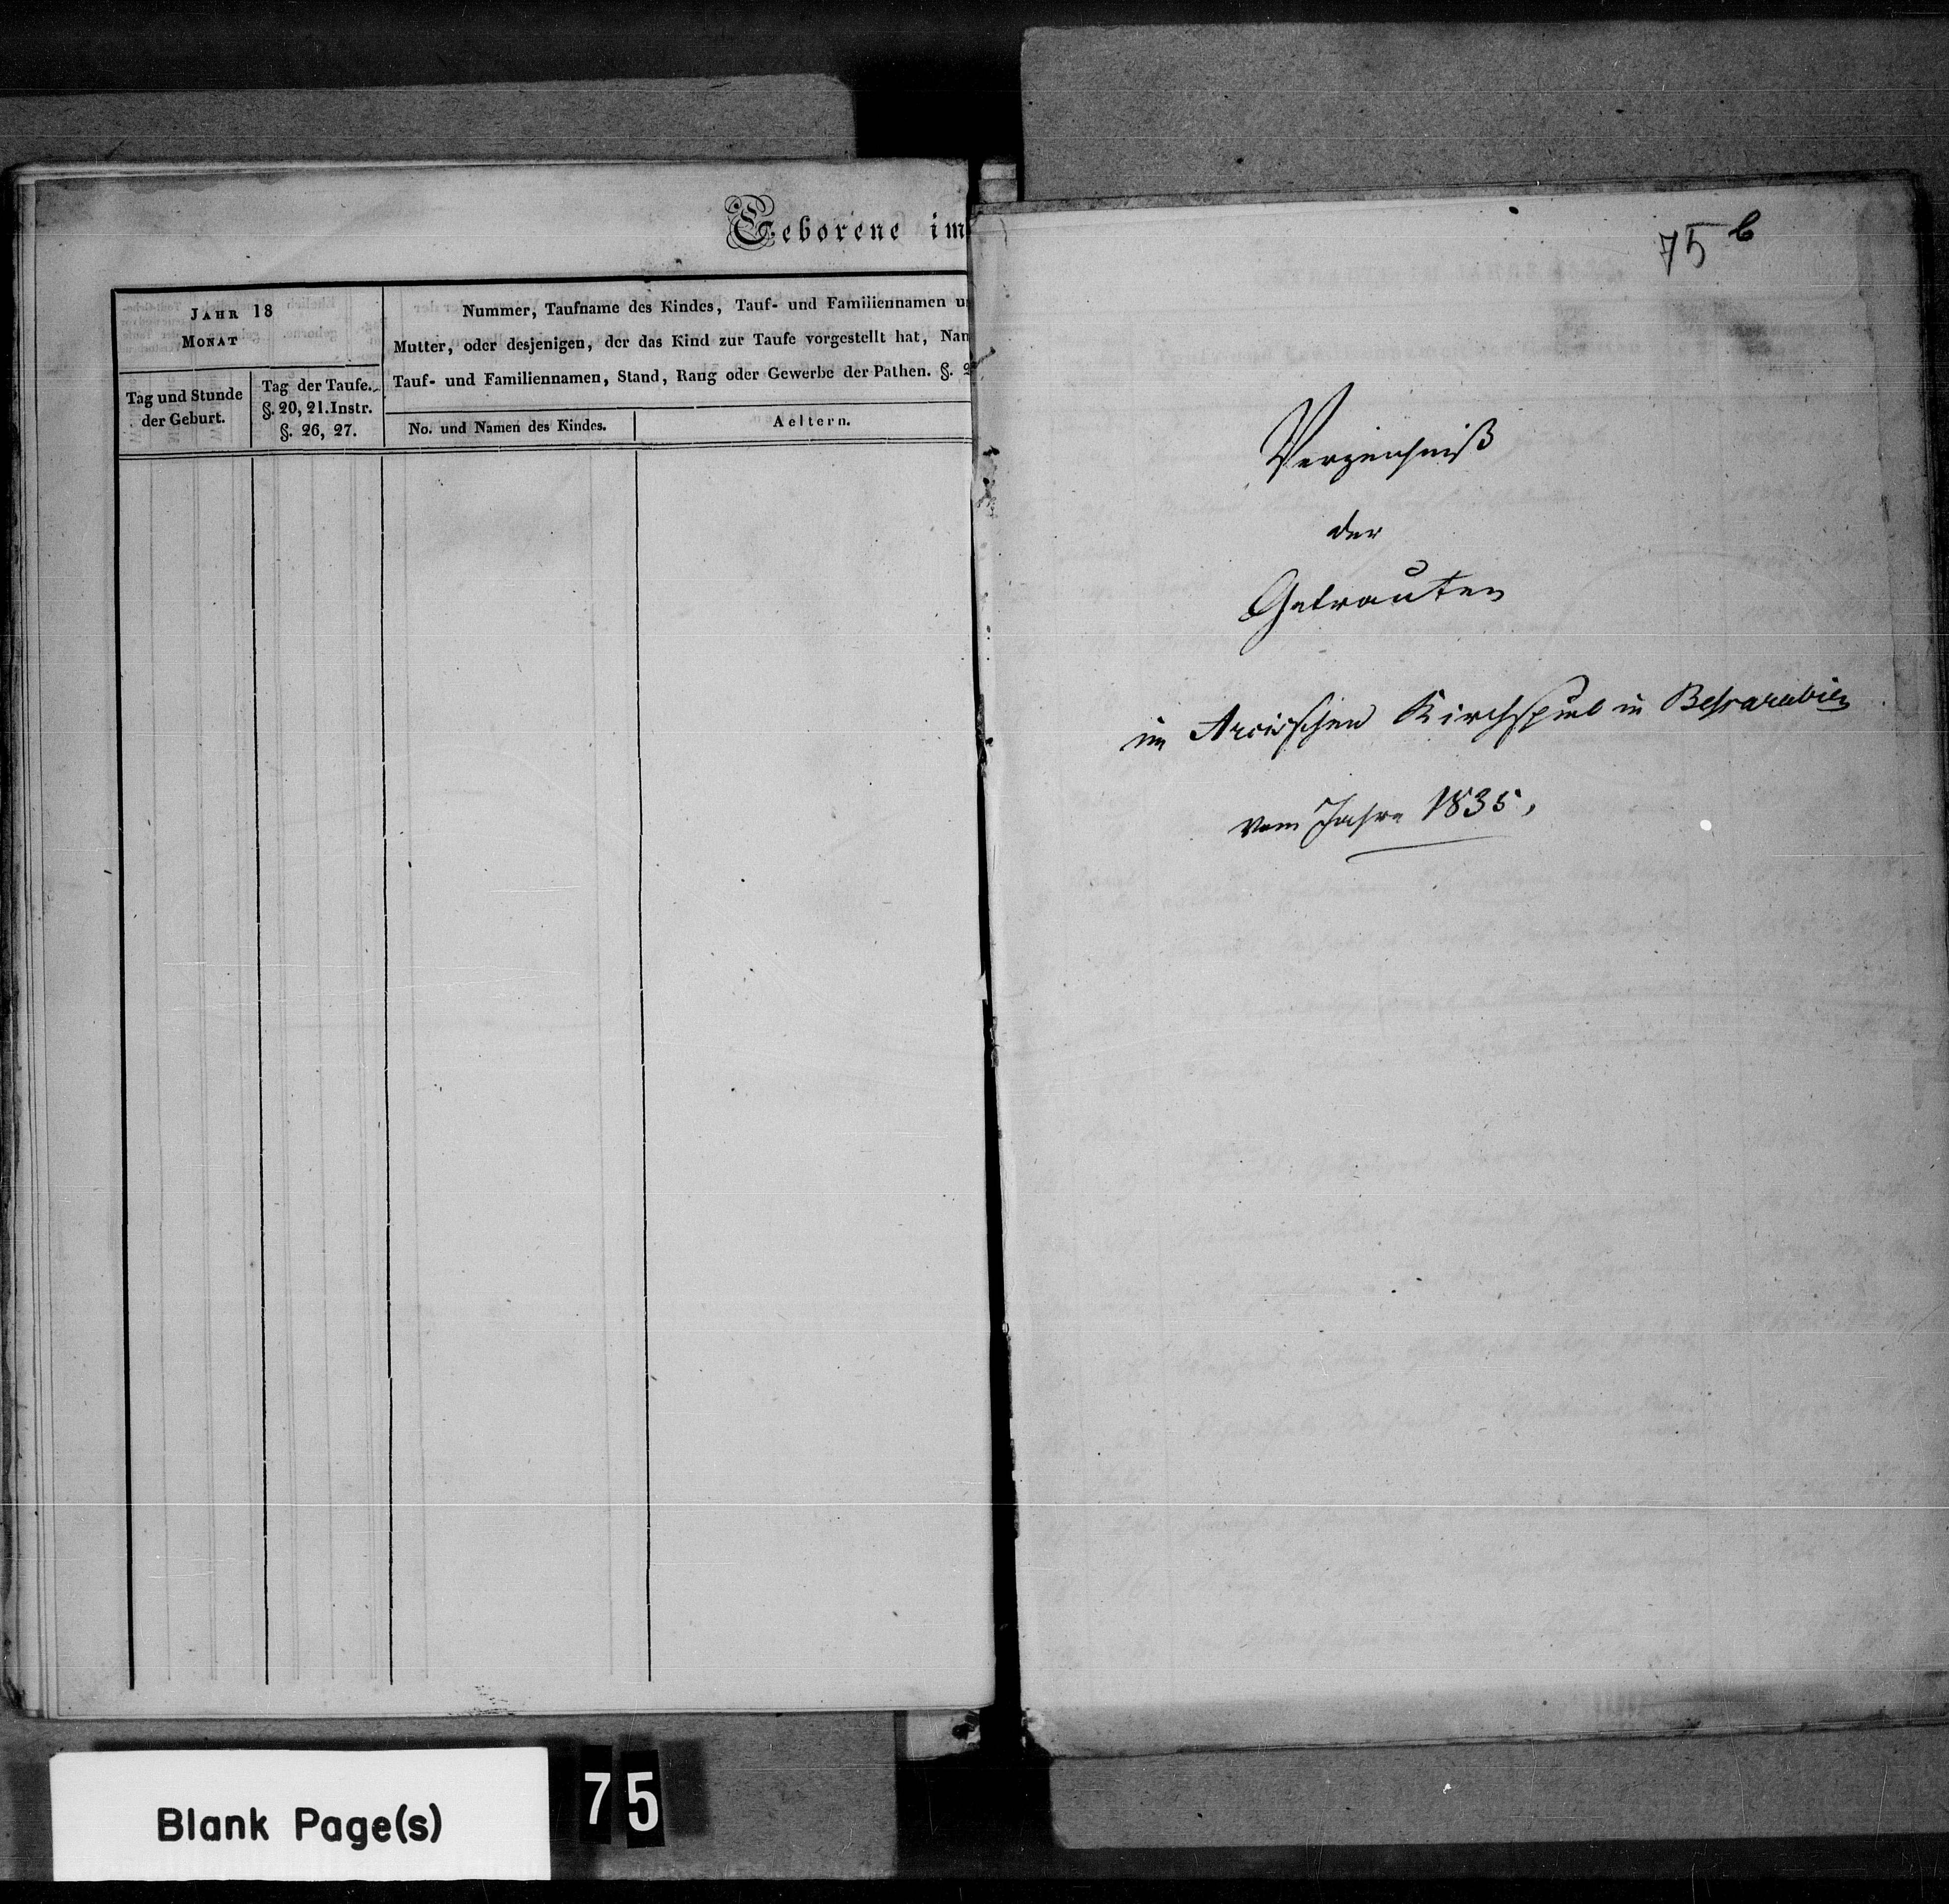 Geborene im
JAHR 18
MONAT
Tag und Stunde
der Geburt.
Tag der Taufe.
§. 20, 21. Instr.
§. 26, 27.
Nummer, Taufname des Kindes, Tauf- und Familiennamen
Mutter, oder desjenigen, der das Kind zur Taufe vorgestellt hat,
Tauf- und Familiennamen, Stand, Rang oder Gewerbe der Pathen. §.
No. und Namen des Kindes.
Aeltern.
75 b
Verzeichniß
der
Getrauten
im Arcisschen Kirchspiel in Bessarabien
vom Jahre 1835.
Blank Page(s)
75